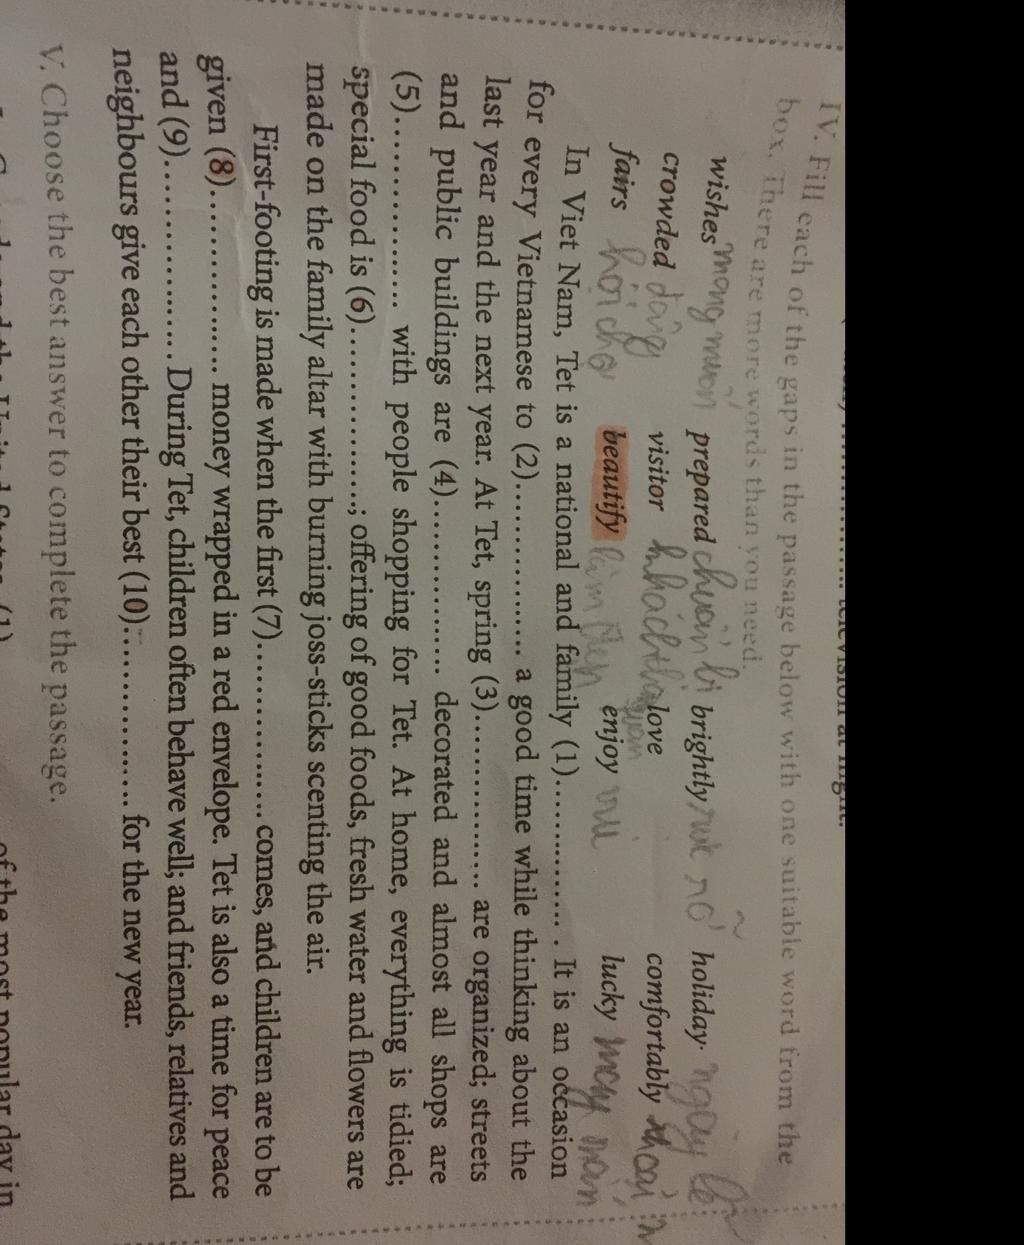 television at night.
IV. Fill each of the gaps in the passage below with one suitable word from the
box. There are more words than you need.
wishes mong muốn prepared chuẩn bị brightly rực rỡ holiday ngày lễ
crowded đông visitor love comfortably
fairs hội chợ beautify làm đẹp enjoy vui lucky may mắn
In Viet Nam, Tet is a national and family (1).............. . It is an occasion
for every Vietnamese to (2)................ a good time while thinking about the
last year and the next year. At Tet, spring (3)................ are organized; streets
and public buildings are (4)................ decorated and almost all shops are
(5)................ with people shopping for Tet. At home, everything is tidied;
special food is (6)................; offering of good foods, fresh water and flowers are
made on the family altar with burning joss-sticks scenting the air.
First-footing is made when the first (7)................ comes, and children are to be
given (8)................ money wrapped in a red envelope. Tet is also a time for peace
and (9)................. During Tet, children often behave well; and friends, relatives and
neighbours give each other their best (10)................ for the new year.
V. Choose the best answer to complete the passage.
the United States (1) of the most popular day in